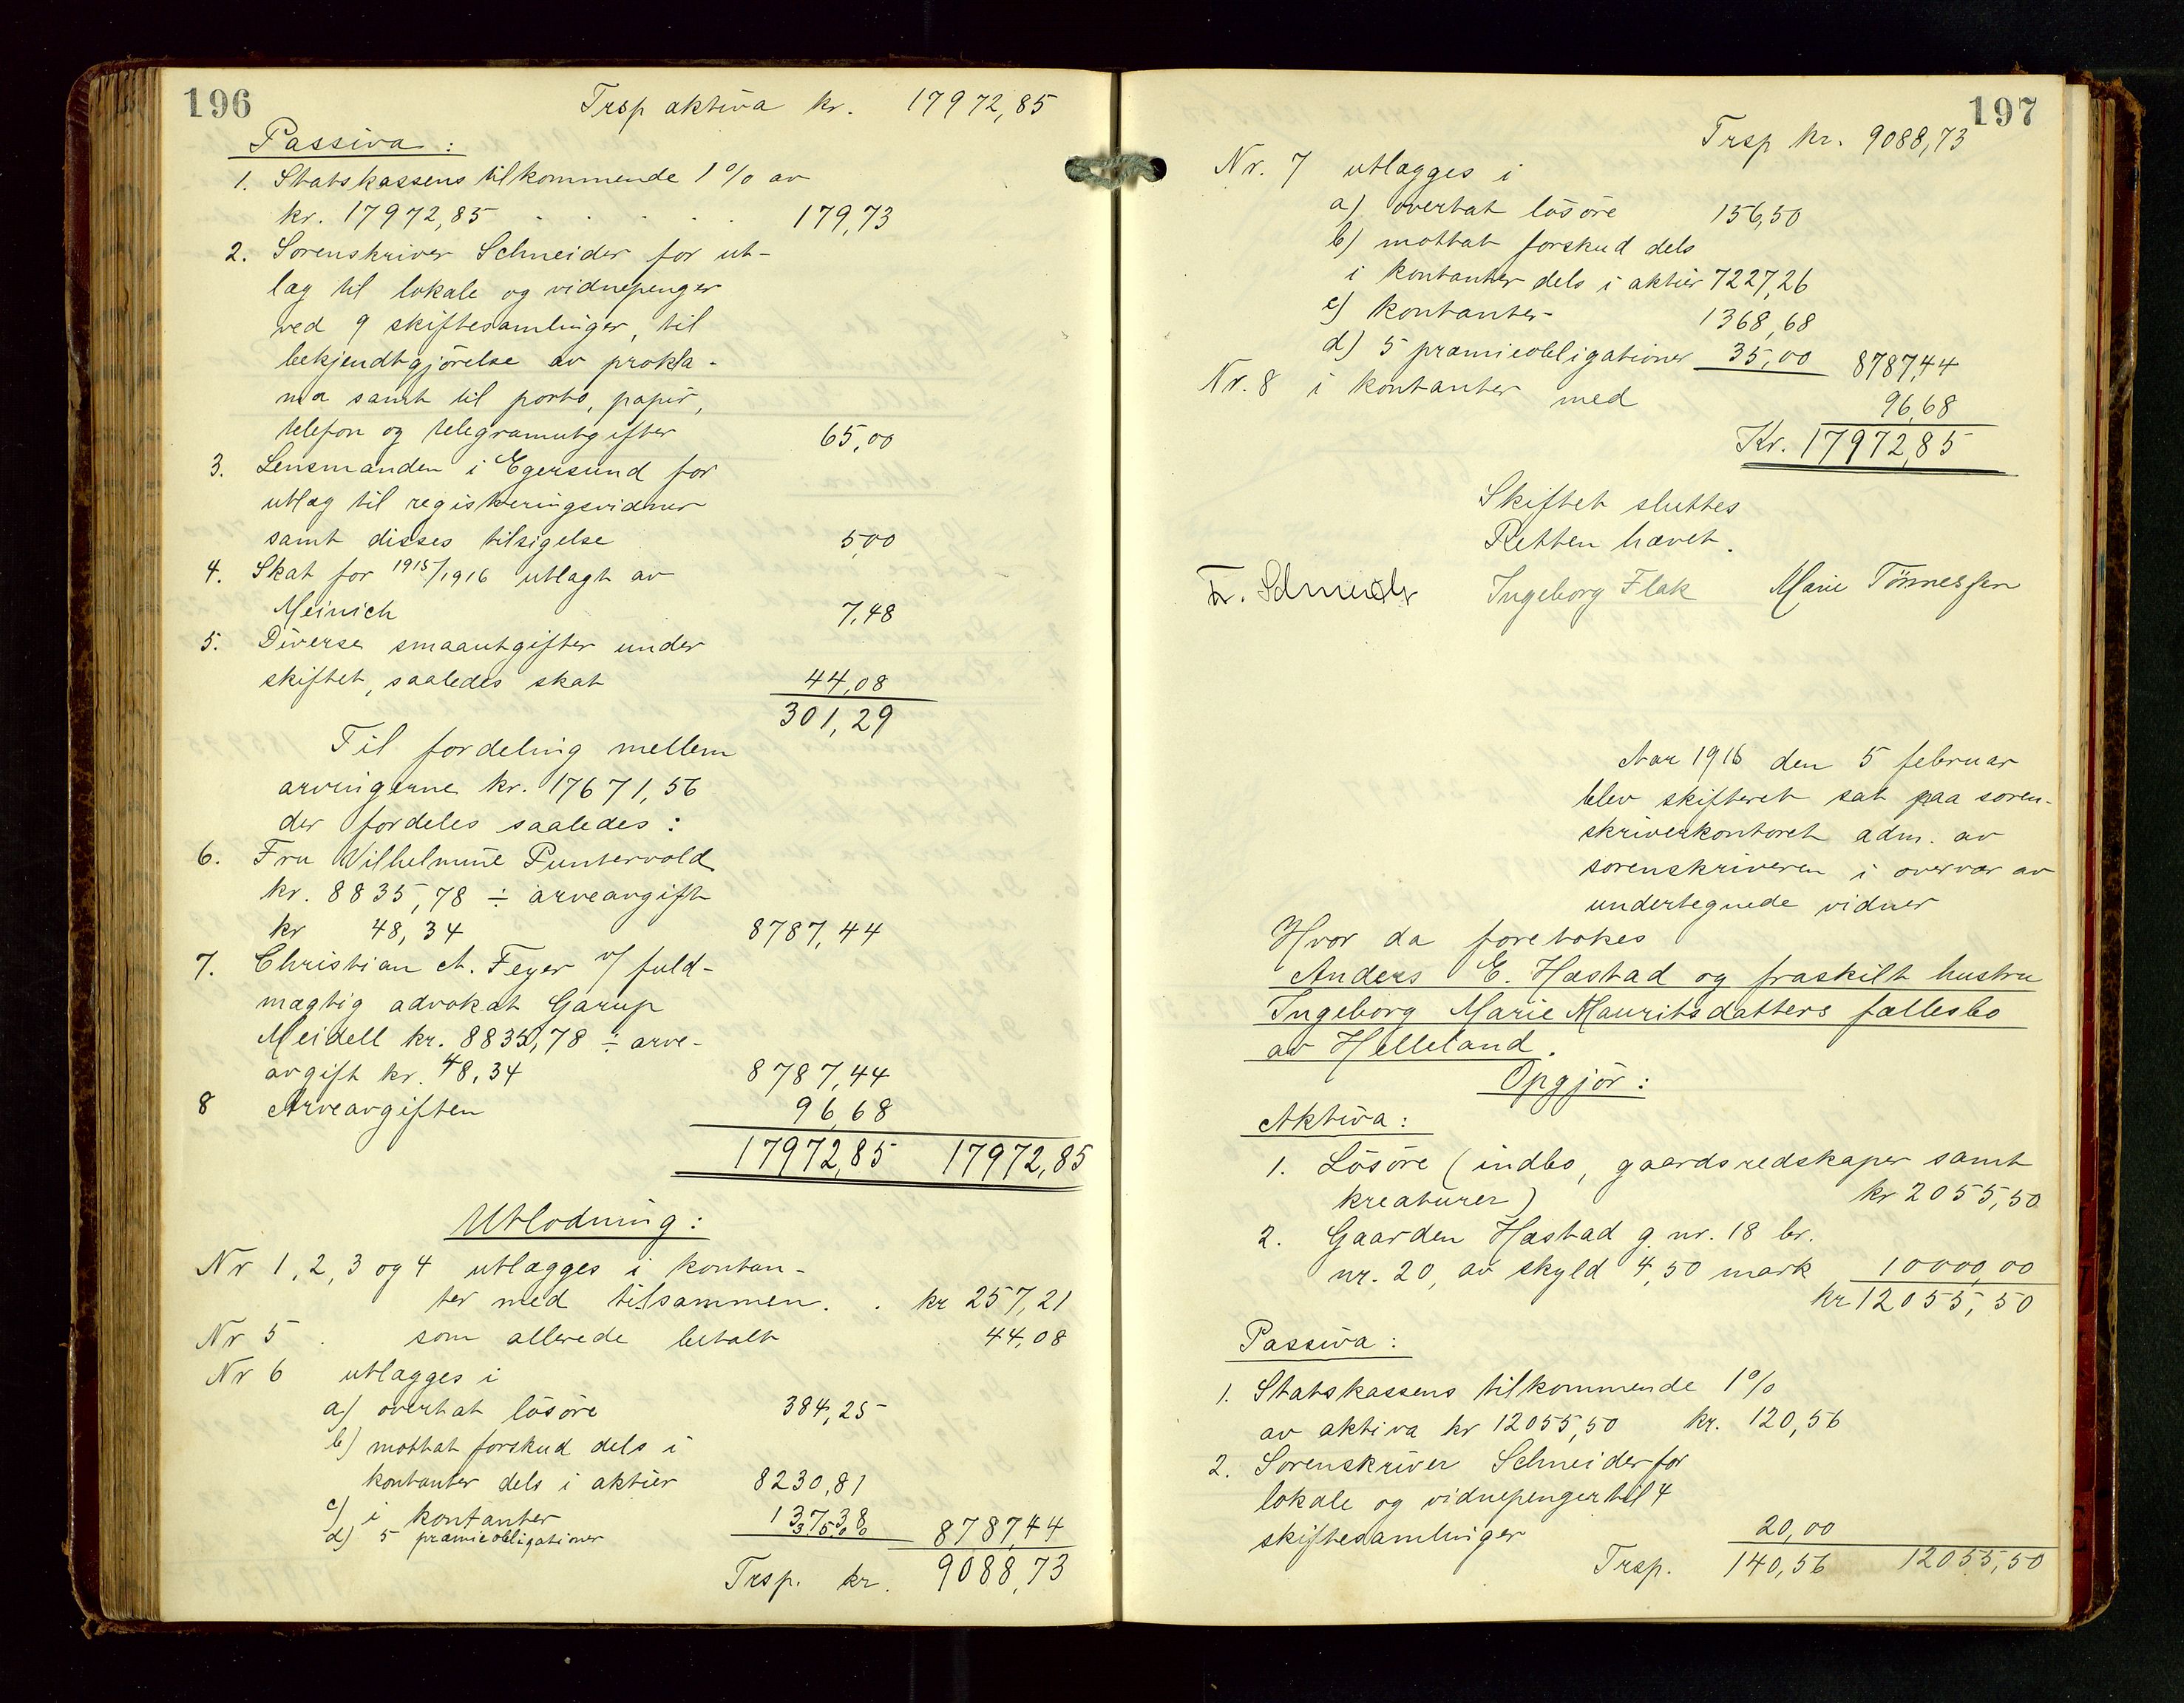 196
Trsp aktiva kr. 17972,85
Passiva:
1. Statskassens tilkommende 1% av
kr. 17972,85 . . . . . 179,73
2. Sorenskriver Schneider for ut-
læg til lokale og vidnepenger
ved 9 skiftesamlinger, til
bekjendtgjörelse av prokla-
ma samt til porto, papir,
telefon og telegramutgifter 65,00
3. Lensmanden i Egersund for
utlæg til registreringsvidner
samt disses tilsigelse 5,00
4. Skat for 1915/1916 utlagt av
Meinich 7,48
5. Diverse smaautgifter under
skiftet, saaledes skat 44,08
301,29
Til fordeling mellem
arvingerne kr. 17671,56
der fordeles saaledes:
6. Fru Wilhelmine Puntervold
kr. 8835,78 ÷ arveavgift
kr 48,34 8787,44
7. Christian A. Feyer v/ fuld-
mægtig advokat Garup
Meidell kr. 8835,78 ÷ arve-
avgift kr. 48,34 8787,44
8 Arveavgiften 96,68
17972,85 17972,85
Utlodning:
Nr 1, 2, 3 og 4 utlægges i kontan-
ter med tilsammen. . kr 257,21
Nr 5 . som allerede betalt 44,08
Nr 6 utlægges i
a) overtat lösöre 384,25
b) mottat forskud dels i
kontanter dels i aktier 8230,81
c) i kontanter 137,38
d) 5 præmieobligationer 35,00 8787,44
Trsp. kr. 9088,73
197
Trsp kr. 9088,73
Nr. 7 utlægges i
a) overtat lösöre 156,50
b) mottat forskud dels
i kontanter dels i aktier 7227,26
c) kontanter 1368,68
d) 5 præmieobligationer 35,00 8787,44
Nr. 8 i kontanter med 96,68
Kr. 17972,85
Skiftet sluttes
Retten hævet.
Fr. Schneider Ingeborg Flak Marie Tönnessen
Aar 1916 den 5 februar
blev skifteret sat paa soren-
skriverkontoret adm. av
sorenskriveren i overvær av
undertegnede vidner
Hvor da foretokes
Anders E. Hæstad og fraskilt hustru
Ingeborg Marie Mauritsdatters fællesbo
av Helleland.
Opgjör:
Aktiva:
1. Lösöre (indbo, gaardsredskaper samt
kreaturer) kr 2055,50
2. Gaarden Hæstad g. nr. 18 br.
nr. 20, av skyld 4,50 mark 10000,00
kr 12055,50
Passiva:
1. Statskassens tilkommende 1%
av aktiva kr 12055,50 kr. 120,56
2. Sorenskriver Schneider for
lokale og vidnepenger til 4
skiftesamlinger 20,00
Trsp. 140,56 12055,50